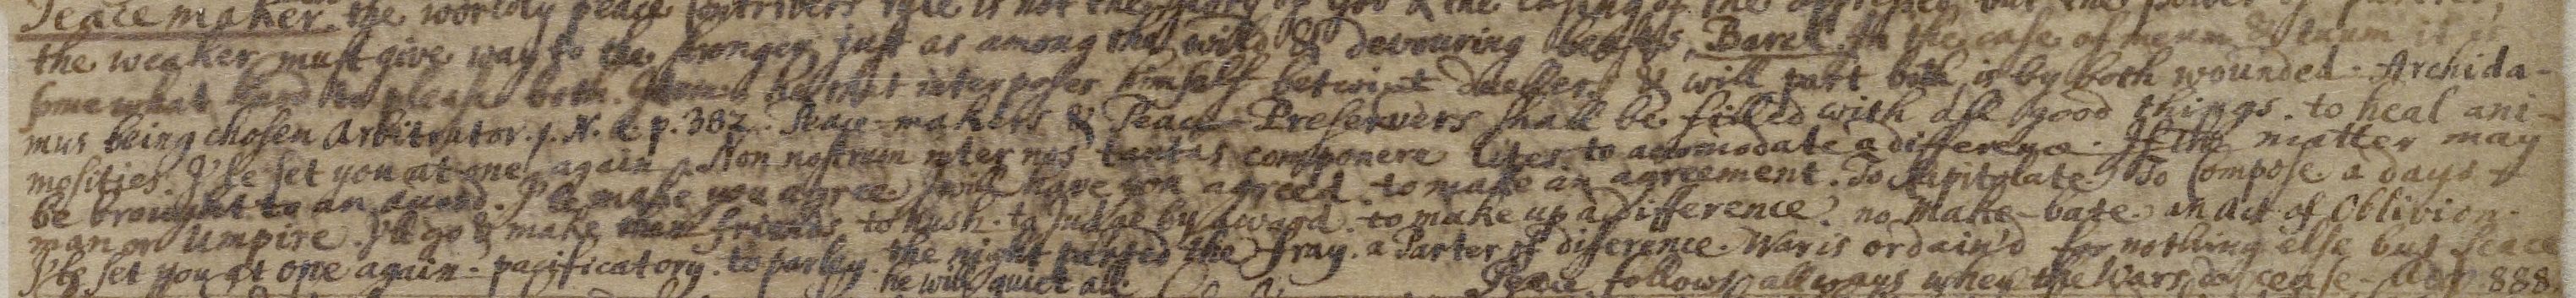 Peacemaker. the worldly peace Contrivers rule is not the glory of God & the easing of the oppressed but the power of parties,
the weaker must give way to the stronger just as among the wild & devouring beasts. Barcl. In the case of meum & tuum it is
somewhat hard to please both. he that interposes himself betwixt duellers & will part both, is by both wounded. Archida-
mus being chosen Arbitrator. p. N. & p. 382. Peace-makers & Peace-Preservers shall be filled with all good things. to heal ani-
mosities. I'le set you at one again. Non nostrum inter nos tantas componere lites. to accomodate a difference. If the matter may
be brought to an accord. I'le make you agree. I will have you agreed. to make an agreement. To Capitulate. To Compose. a days-
man or Umpire. I'le go & make them friends. to hush. to Judge by award. to make up a difference. no Make-bate. an Act of Oblivion.
I'le set you at one again. pacificatory. to parley. the night parted the fray. a Parter of difference. War is ordain'd for nothing else but Peace
he will quiet all. Peace follows allways when the Wars do cease. Adv. 888.